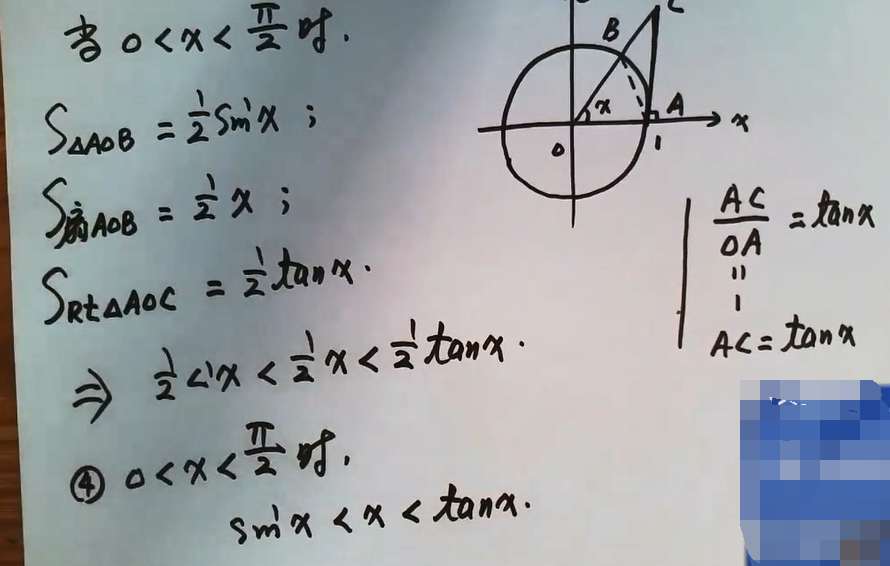 当 0 < x < π/2 时.
S△AOB = 1/2 sin x ;
S扇AOB = 1/2 x ;
SRt△AOC = 1/2 tan x .
⇒ 1/2 x < 1/2 x < 1/2 tan x .
④ 0 < x < π/2 时.
sin x < x < tan x .
B
C
x
A
x
O
1
AC/OA = tan x
"
1
AC = tan x